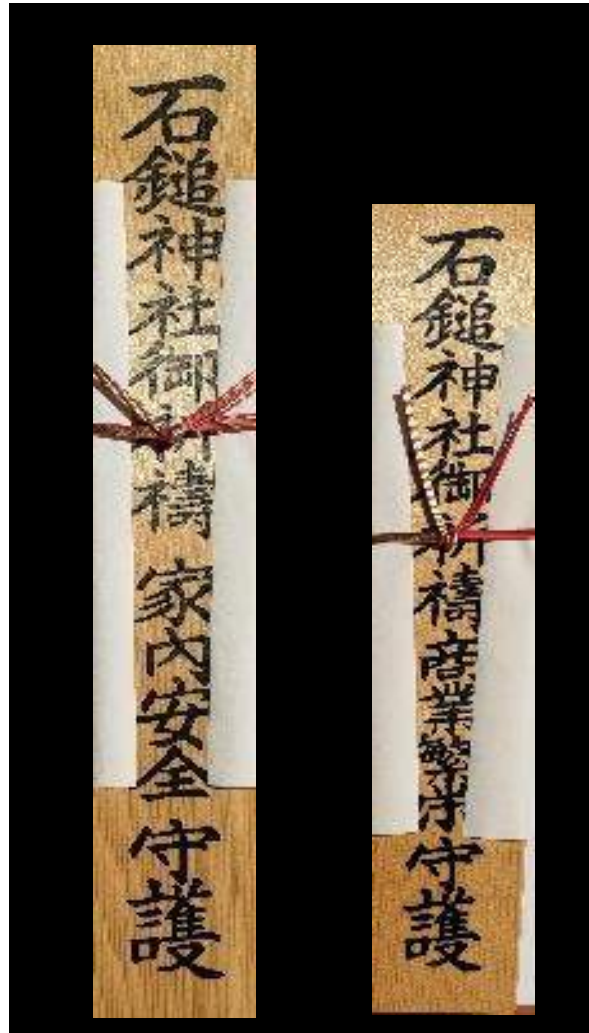 石鎚神社御祈禱 家内安全 守護
石鎚神社御祈禱商業繁栄守護